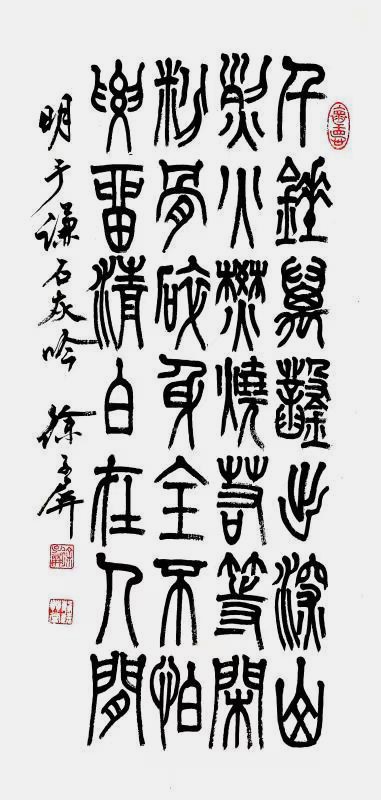 千錘萬鑿出深山
烈火焚燒若等閑
粉骨碎身全不怕
要留清白在人間
明于謙石灰吟 徐子屏